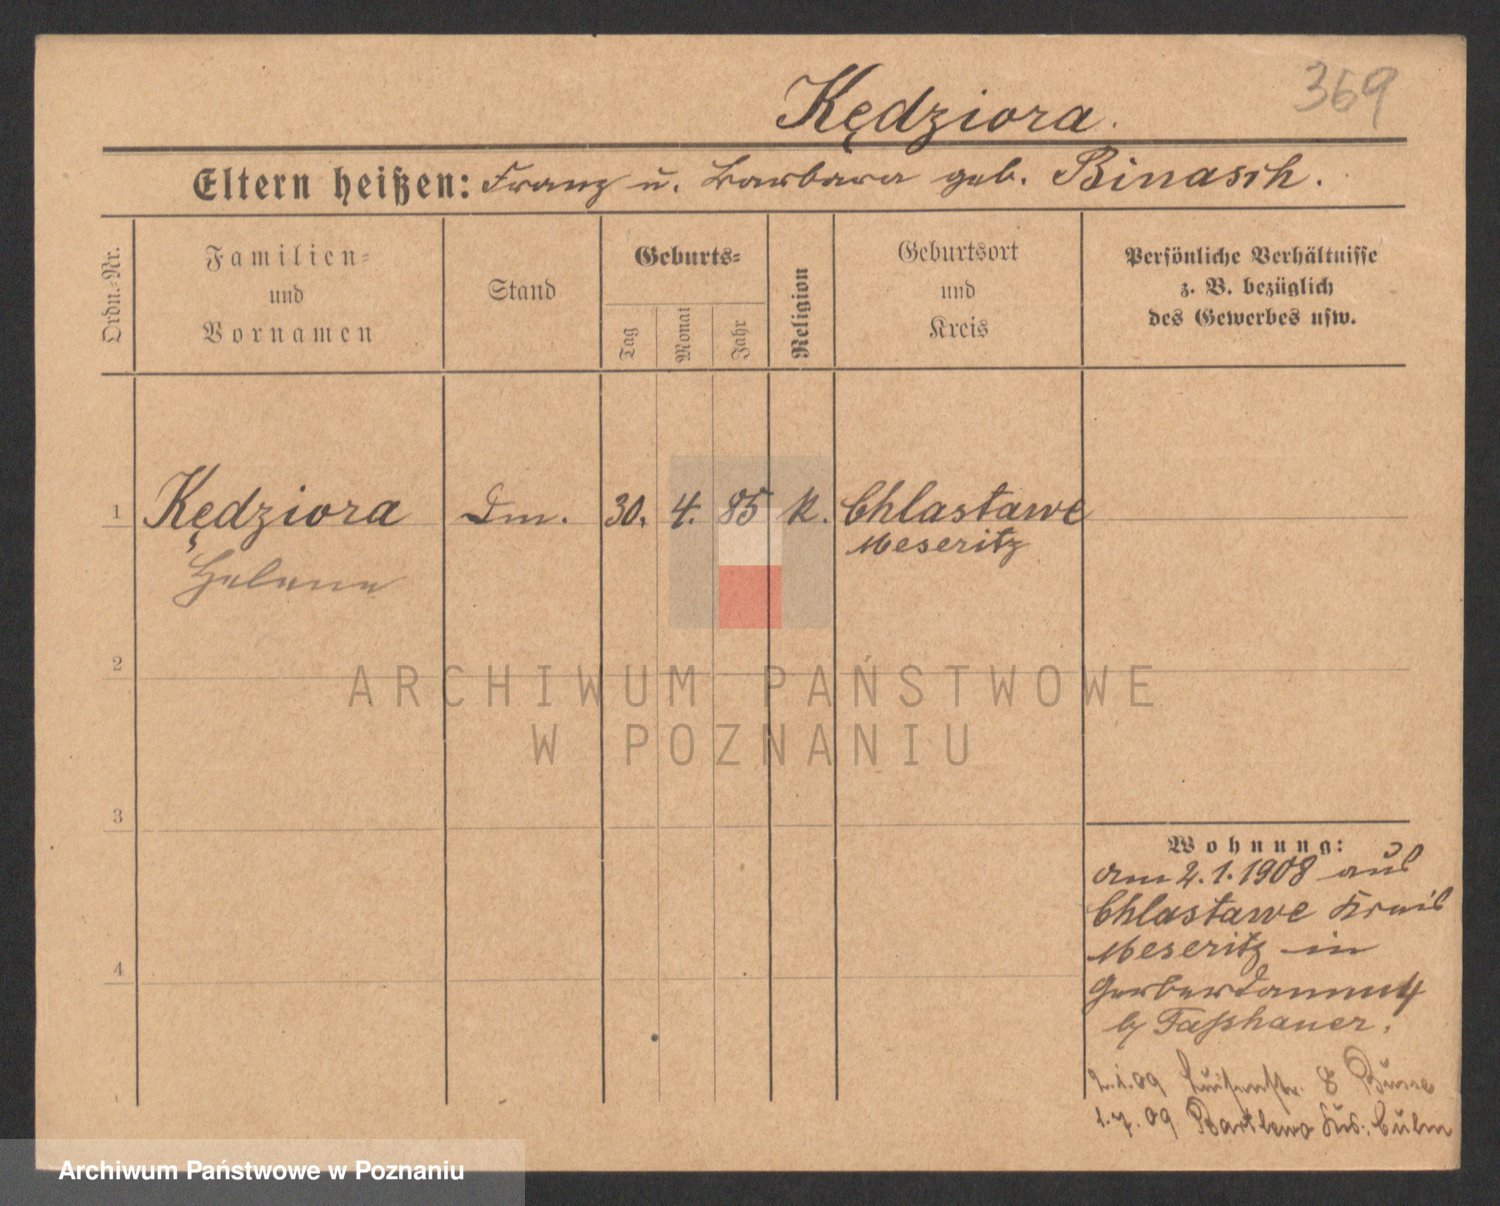 369
Kędziora.
Eltern heißen: Franz u. Barbara geb. Binasch.
Ordn.-Nr.
Familien-
und
Vornamen
Stand
Geburts-
Tag
Monat
Jahr
Religion
Geburtsort
und
Kreis
Persönliche Verhältnisse
z. B. bezüglich
des Gewerbes usw.
1 Kędziora Dm. 30. 4. 85 K. Chlastawe
Meseritz
Helene
2
ARCHIWUM PAŃSTWOWE
W POZNANIU
3
Wohnung:
am 2.1.1908 aus
Chlastawe Kreis
Meseritz in
4
Gerberdamm 4
b/ Faßhauer.
2.1.09 Luisenstr. 8 Busse
1.7.09 Bartlewo Krs. Culm
Archiwum Państwowe w Poznaniu